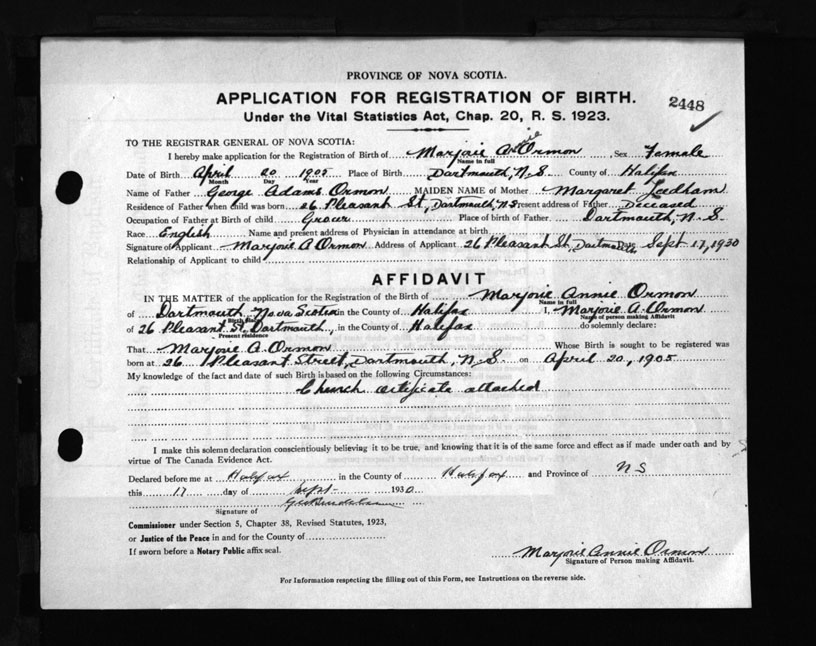 PROVINCE OF NOVA SCOTIA.
APPLICATION FOR REGISTRATION OF BIRTH.
2448
Under the Vital Statistics Act, Chap. 20, R. S. 1923.
TO THE REGISTRAR GENERAL OF NOVA SCOTIA:
I hereby make application for the Registration of Birth of Marjorie Annie Ormon Sex Female
Name in full
Date of Birth April 20 1905 Place of Birth Dartmouth, N.S. County of Halifax
Month Day Year
Name of Father George Adams Ormon MAIDEN NAME of Mother Margaret Leedham
Residence of Father when child was born 26 Pleasant St, Dartmouth, N.S Present address of Father Deceased
Occupation of Father at Birth of child Grocer Place of birth of Father Dartmouth, N. S.
Race English Name and present address of Physician in attendance at birth
Signature of Applicant Marjorie A Ormon Address of Applicant 26 Pleasant St, Dartmouth Date Sept 17, 1930
Relationship of Applicant to child
AFFIDAVIT
IN THE MATTER of the application for the Registration of the Birth of Marjorie Annie Ormon
Name in full
of Dartmouth, Nova Scotia in the County of Halifax I, Marjorie A. Ormon
Birth Place Name of person making Affidavit
of 26 Pleasant St. Dartmouth, in the County of Halifax do solemnly declare:
Present residence
That Marjorie A. Ormon Whose Birth is sought to be registered was
born at 26 Pleasant Street, Dartmouth, N. S. on April 20, 1905
My knowledge of the fact and date of such Birth is based on the following Circumstances:
Church certificate attached
I make this solemn declaration conscientiously believing it to be true, and knowing that it is of the same force and effect as if made under oath and by
virtue of The Canada Evidence Act.
Declared before me at Halifax in the County of Halifax and Province of N S
this 17 day of Sept 1930
Signature of
Commissioner under Section 5, Chapter 38, Revised Statutes, 1923,
or Justice of the Peace in and for the County of
If sworn before a Notary Public affix seal.
Marjorie Annie Ormon
Signature of Person making Affidavit.
For Information respecting the filling out of this Form, see Instructions on the reverse side.